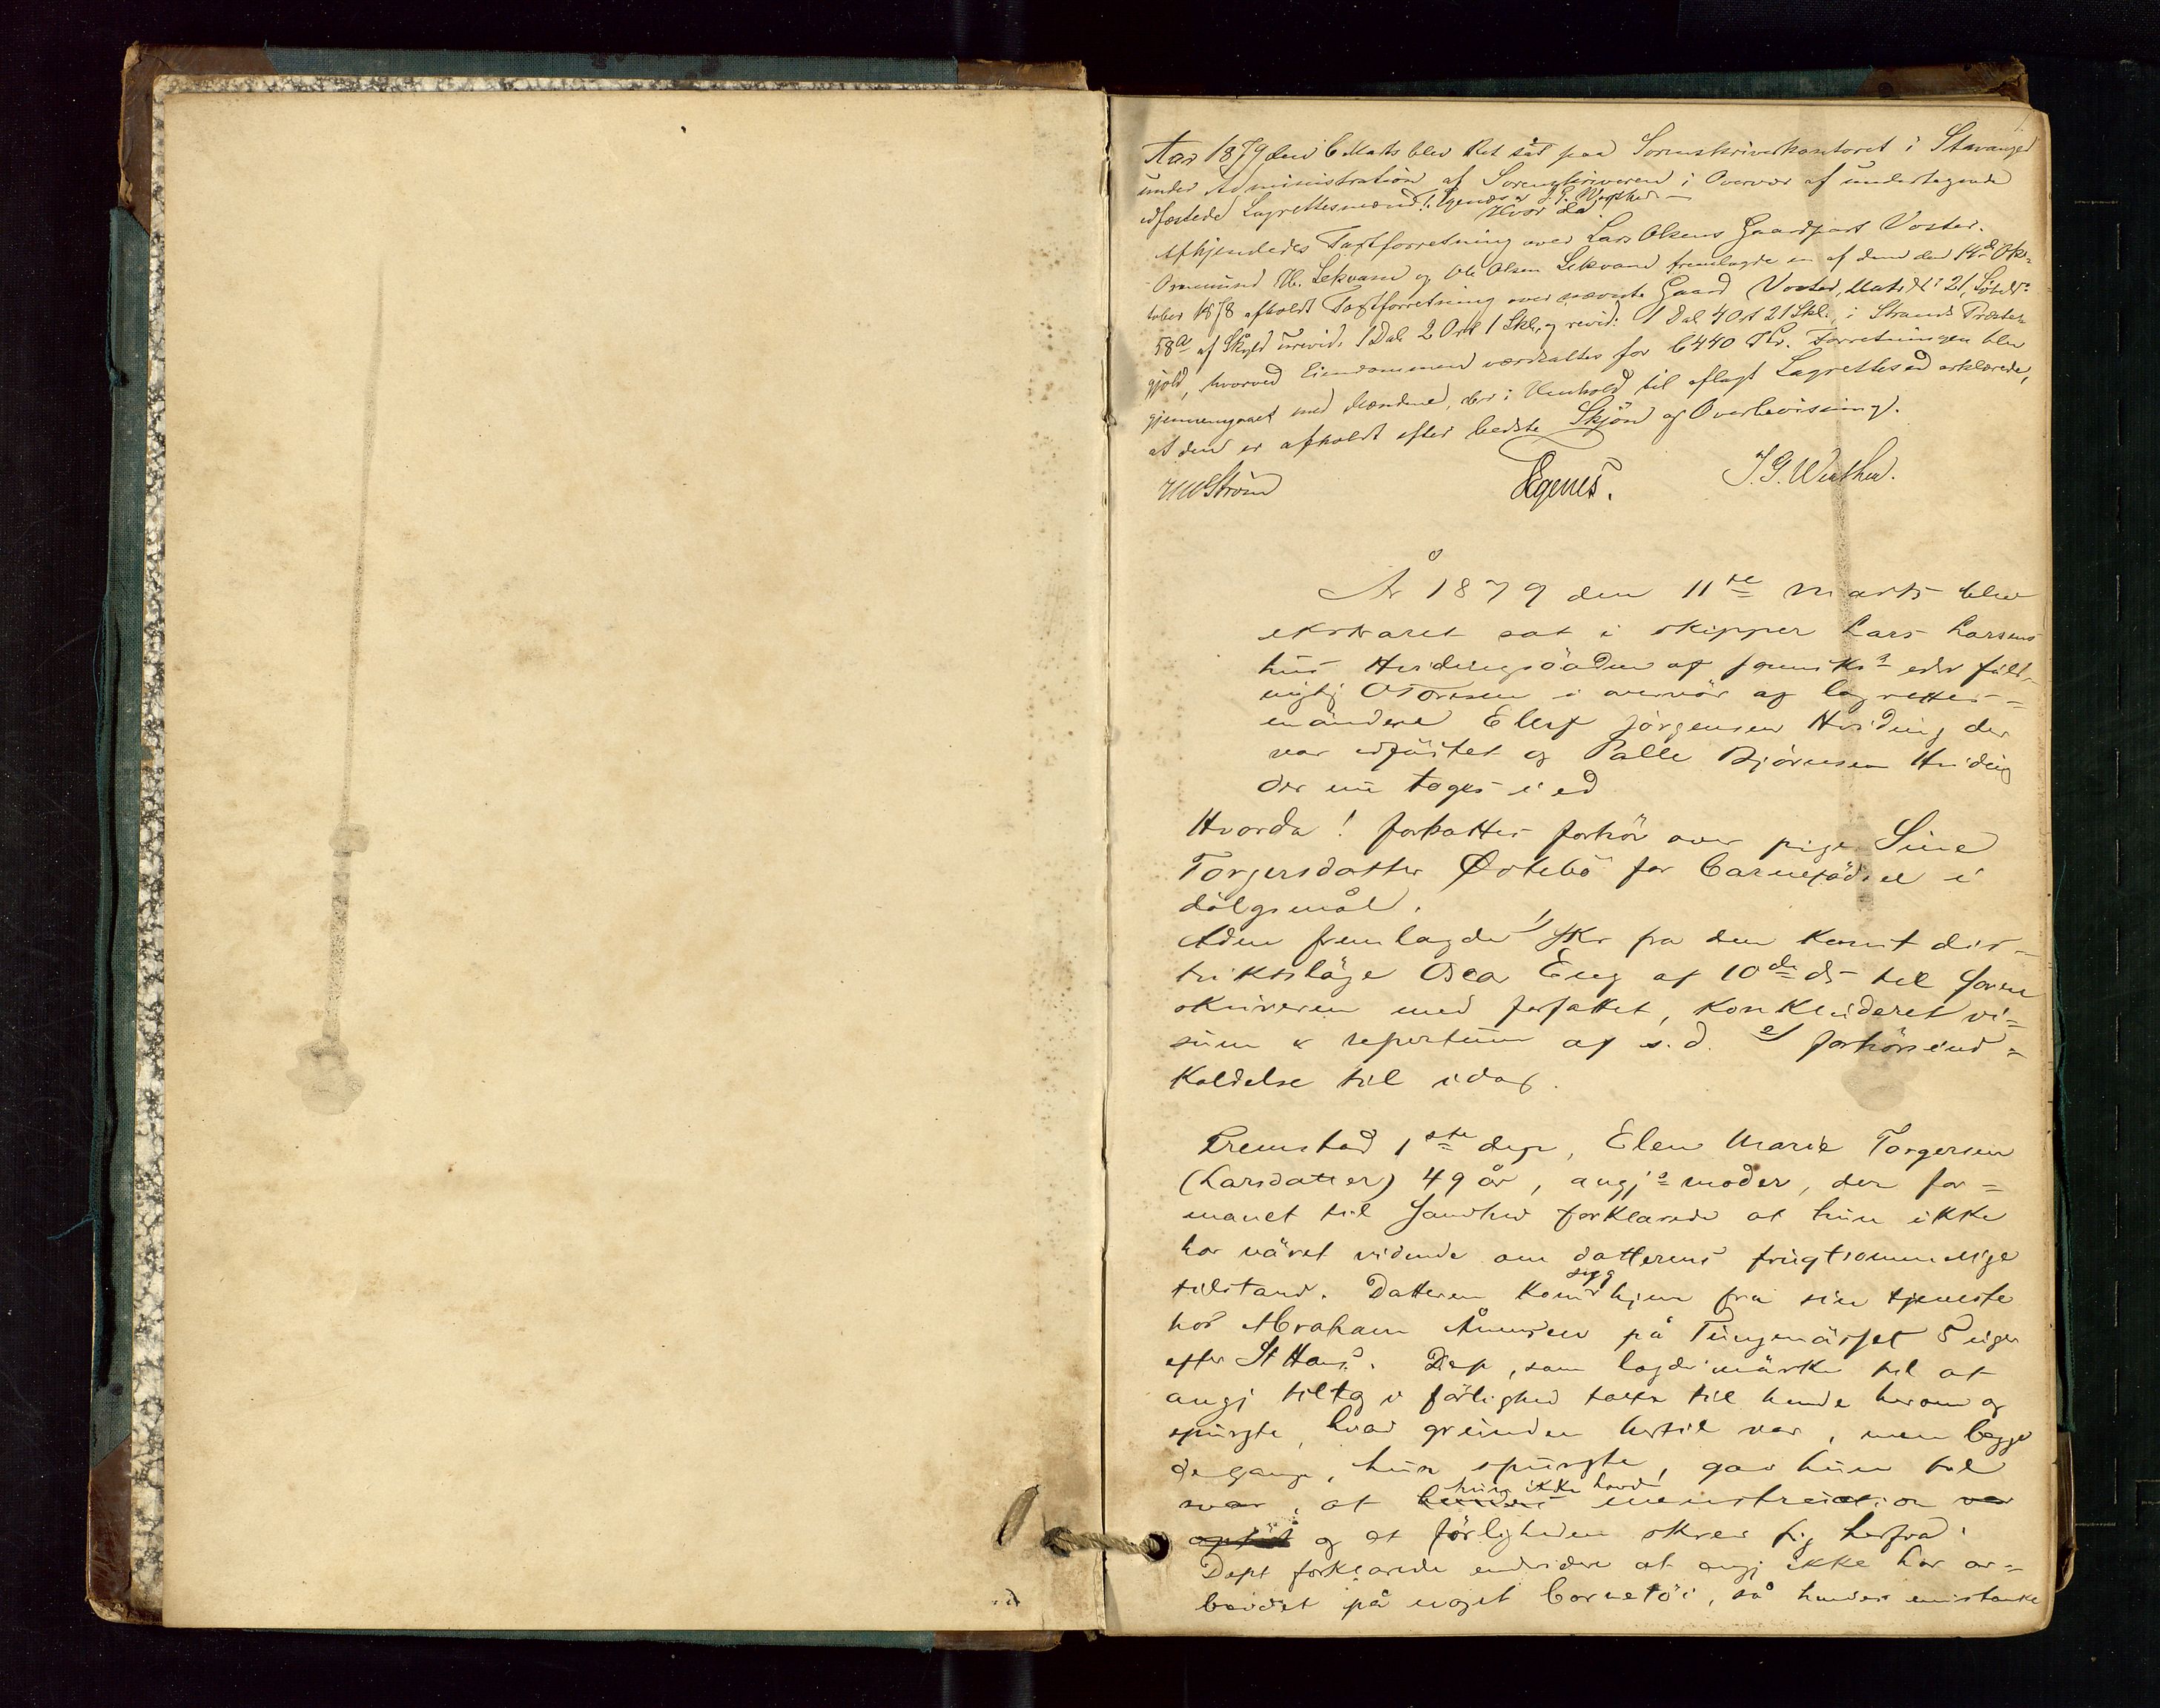 1.
Aar 1879 den 6 Marts blev Ret sat paa Sorenskriverkontoret i Stavanger
under Administration af Sorenskriveren i Overvær af undertegnede
edfæstede Lagrettesmænd: Egenes og J. G. Werthes.
Hvor da
Afhjemledes Taxtforretning over Lars Olsens Gaardpart Voster.
Ommund Ol. Lekvam og Ole Olsen Lekvam fremlagde en af dem den 14de Ok-
tober 1878 afholdt Taxtforretning over nævnte Gaard Voster, Mats Nr 21, Löbenr
58a af Skyld urevid. 1 Dal. 2 Ort 1 Skl. og revid: 1 Dal 4 Ort 21 Skl. i Strands Præste-
gjæld, hvorved Eiendommen værdsattes for 6440 Kr. Forretningen blev
gjennemgaaet med Mændene, der i Henhold til aflagt Lagrettesed erklærede,
at den er afholdt efter bedste Skjön og Overbevisning.
Ström Egenes. J. G. Werthes.
År 1879 den 11te marts blev
ekstraret sat i skipper Lars Larsens
hus Hvidingsö af sorenskrs edsv fuld-
mgtg OTorsen i overvär af lagrettes-
mändene Elles Jörgensen Hviding der
var edfästet og Palle Björnsen Hviding
der nu toges i ed
Hvorda! forsattes forhör over pige Sine
Torgersdatter Östebö for barnefödsel i
dölgsmål.
Adm fremlagde 1/ skr fra den konst dis-
triktsläge Oscar Eng af 10de ds til soren
skriveren med forfattet, konkluderet vi-
sum & repertum af s.d. 2/ forhörsind-
kaldelse til idag.
Fremstod 1ste dep, Elen Marie Torgersen
(Larsdatter) 49 år, angjs moder, der for-
manet til sandhed forklarede at hun ikke
har väret vidende om datterens frugtsommelige
tilstand. Datteren kom syg hjem fra sin tjeneste
hos Abraham Åmundsen på Tungenässet 5 uger
efter St Hans. Dep, som lagde märke til at
angj tiltog i förlighed talte til hende herom og
spurgte, hvad grunden hertil var, men begge
de gange, hun spurgte, gav hun til
svar, at hun ikke havde menstruation var
og at förligheden skrev sig herfra.
Dept forklarede endvidere at angj ikke har ar-
beidet på noget barnetöi, så hendes mistanke